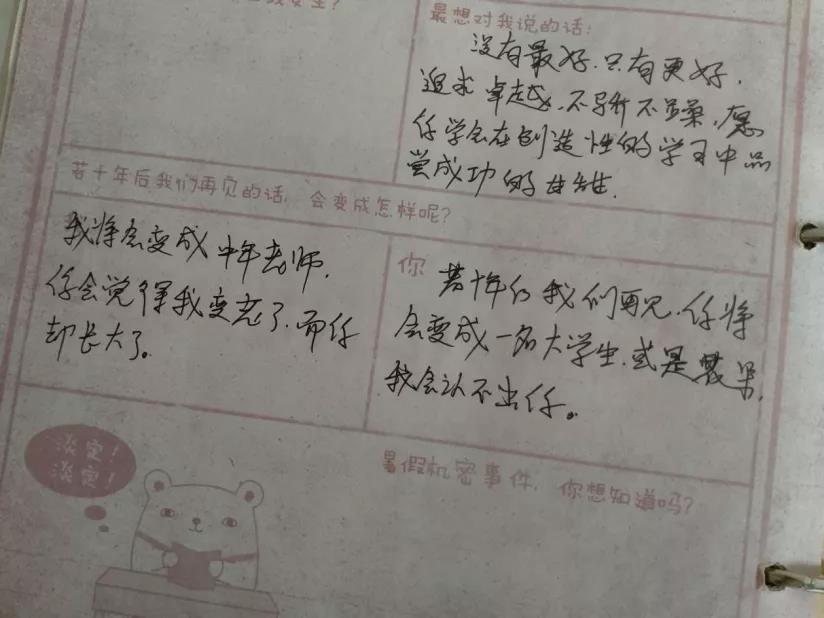 最想对我说的话:
没有最好.只有更好.
追求卓越.不骄不躁.愿
你学会在创造性的学习中品
尝成功的
若十年后我们再见的话, 会变成怎样呢?
我将会变成中年老师.
你会觉得我变老了.而你
却长大了。
你
若十年后我们再见.你将
会变成一名大学生.或是
我会认不出你。
淡定!
淡定!
暑假机密事件, 你想知道吗?